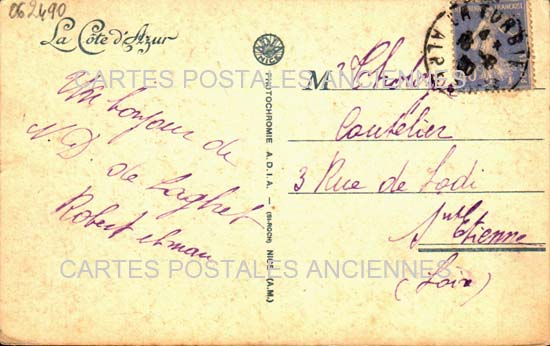 062490
La Côte d'Azur
Un bonjour de
N. D. de Laghet
Robert et man
PHOTOCHROMIE A.D.I.A. — (St-ROCH) NICE (A.M.)
NICE
M
Coutelier
3 Rue de Lodi
St Etienne
(Loire)
LA TURBIE
CARTES POSTALES ANCIENNES
CARTES POSTALES ANCIENNES